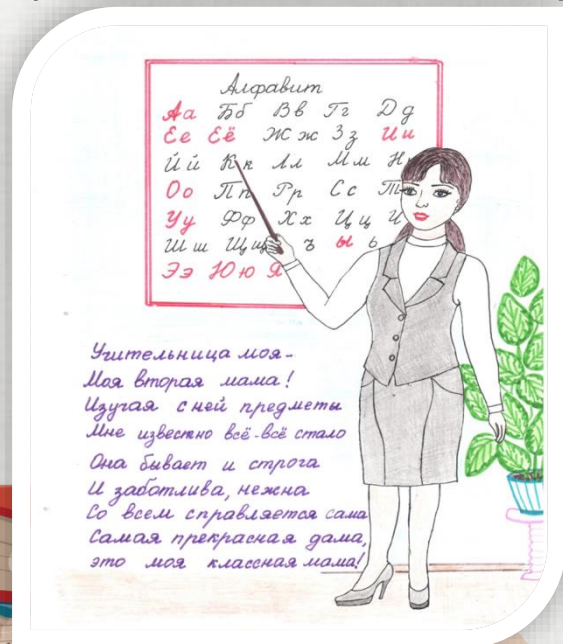 Алфавит
Аа Бб Вв Гг Дд
Ее Её Жж Зз Ии
Йй Кк Лл Мм Н
Оо Пп Рр Сс Т
Уу Фф Хх Цц Ч
Шш Щщ ъ ы ь
Ээ Юю Я
Учительница моя-
Моя вторая мама!
Изучая с ней предметы
Мне известно всё-всё стало
Она бывает и строга
И заботлива, нежна
Со всем справляется сама
Самая прекрасная дама,
это моя классная мама!